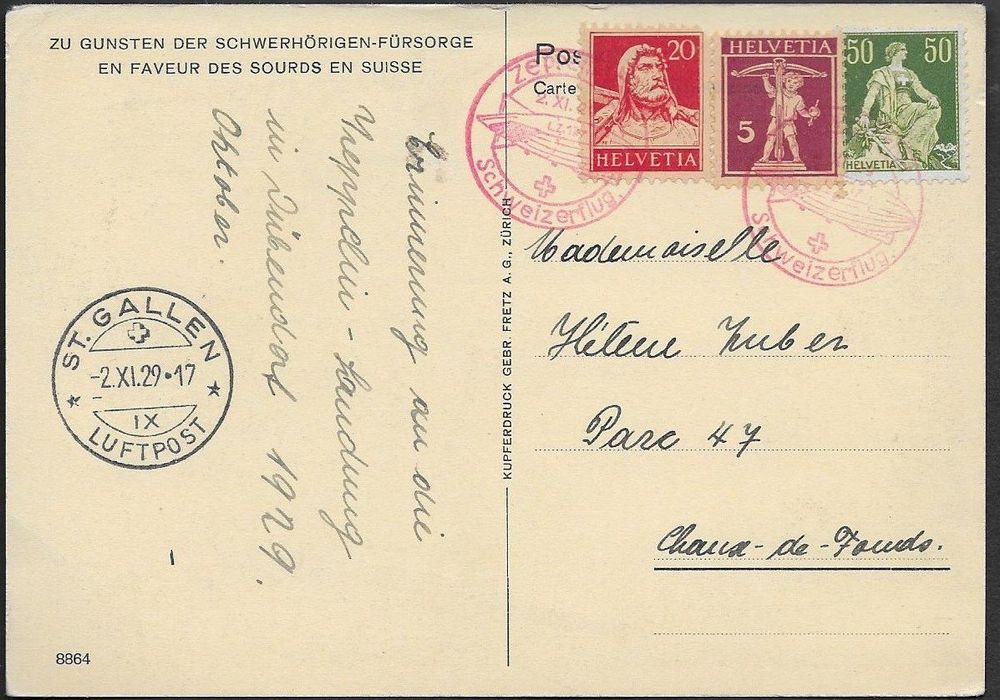 ZU GUNSTEN DER SCHWERHÖRIGEN-FÜRSORGE
EN FAVEUR DES SOURDS EN SUISSE
Erinnerung an die
Zeppelin-Landung
in Dübendorf 1929.
Oktober.
ST. GALLEN
-2.XI.29•17
IX
LUFTPOST
8864
KUPFERDRUCK GEBR. FRETZ A. G., ZÜRICH
Pos
Carte
2. XI. 2
Schweizerflug.
20
HELVETIA
HELVETIA
5
50 50
HELVETIA
Schweizerflug.
Mademoiselle
Hélène Huber
Parc 47
Chaux-de-Fonds.